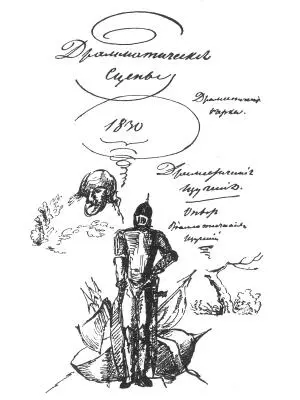 Драмматическия
Сцены
1830
Драматические
очерки.
Драматические
изучения.
Опыт
Драматических
изучений